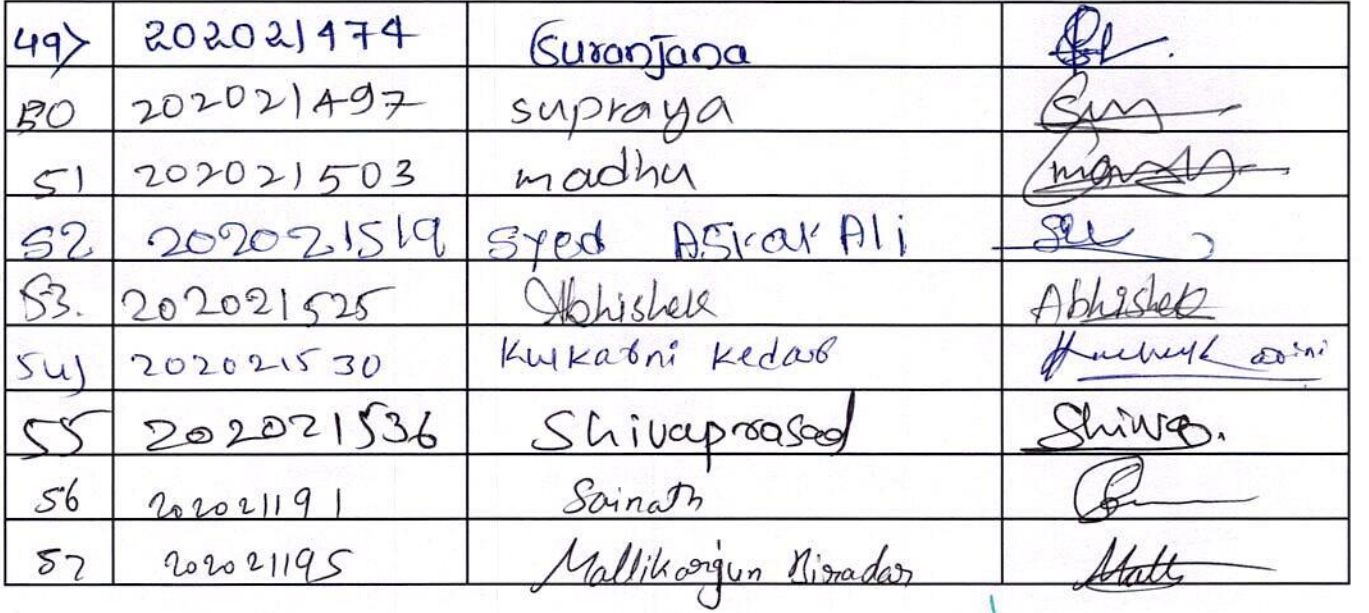 49> 202021474 Suranjana
50 202021497 supraya
51 202021503 madhu
52 202021519 Syed Asrar Ali
53. 202021525 Abhishek Abhishek
54) 202021530 Kulkarni Kedar
55 202021536 Shivaprasad Shiva.
56 202021191 Sainath
57 202021195 Mallikarjun Biradar